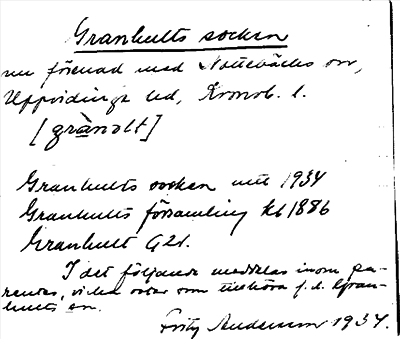 Granhults socken
nu förenad med Nottebäcks sn,
Uppvidinge hd, Kronob. l.
[grànolt]
Granhults socken utt 1934
Granhults församling kb 1886
Granhult G21.
I det följande meddelas inom pa-
rentes, vilka orter som tillhöra f. d. Gran-
hults sn.
Fritz Anderson 1934.